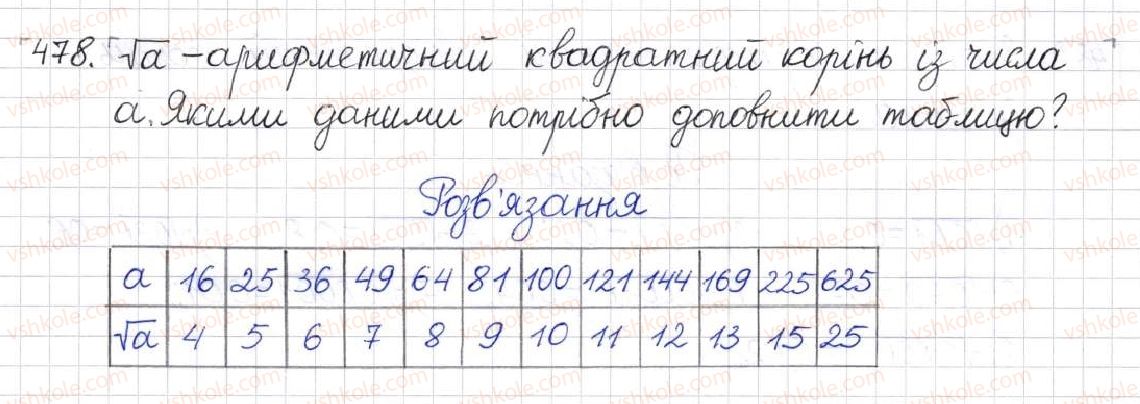 478. √a - арифметичний квадратний корінь із числа
а. Якими даними потрібно доповнити таблицю?
Розв'язання
a 16 25 36 49 64 81 100 121 144 169 225 625
√a 4 5 6 7 8 9 10 11 12 13 15 25
vshkole.com